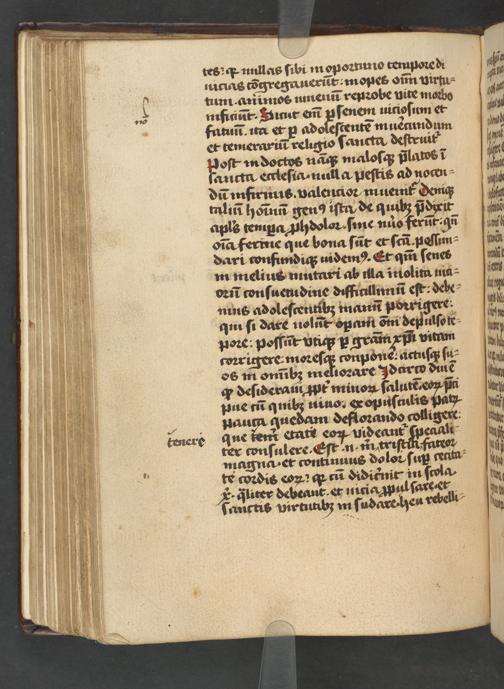 tes: qꝫ nullas sibi in oportuno tempore di
uicias cōgregauerūt: inopes om̄ virtu-
tum. animos iuuenū reprobe vite morbo
inficiūt. Sicut em̄ ꝑ senem viciosum et
fatuū. ita et ꝑ adolescentē inuecundum
et temerariū religio sancta destruit᷑
Post indoctos nāqꝫ malosqꝫ p̄latos ī
sancta ecclesia nulla pestis ad nocen-
dū infirmis. valencior inuenit᷑ Deniqꝫ
taliū hoīnū genꝯ ista de quibꝫ p̄dixit
apl̄s tempa ꝓh dolor. sine nūo ferūt: qn̄
oīa ferme que bona sūt et scā. pessun-
dari confundiqꝫ videmꝯ. Et qm̄ senes
in melius mutari ab illa inolita ma-
orū consuetudine difficillimū est: debe-
mus adolescentibꝫ manū porrigere:
qui si dare volūt opam om̄i depulso te-
pore: possūt vtiqꝫ ꝑ grām xp̄i vitam
corrigere: moresqꝫ conpone᷑: actusqꝫ su-
os in om̄ibꝫ meliorare Idcirco diu ē
qꝫ desiderauī ꝓpt᷑ minoꝝ salutē. eoꝝ p̄ci
pue cū quibꝫ viuo. ex opusculis patꝝ
pauca quedam deflorando colligere:
que ten̄e etate eoꝝ videant᷑ speciali-
tenere
ter consulere. Est .n. m̄. tristicia fateor
magna. et continuus dolor suꝑ cecita-
te cordis eoꝝ: qꝫ cū didic̄int in scola.
xp̄. qualiter debeant. et uicia ꝓpulsare. et
sanctis virtutibꝫ insudare. heu rebelli-